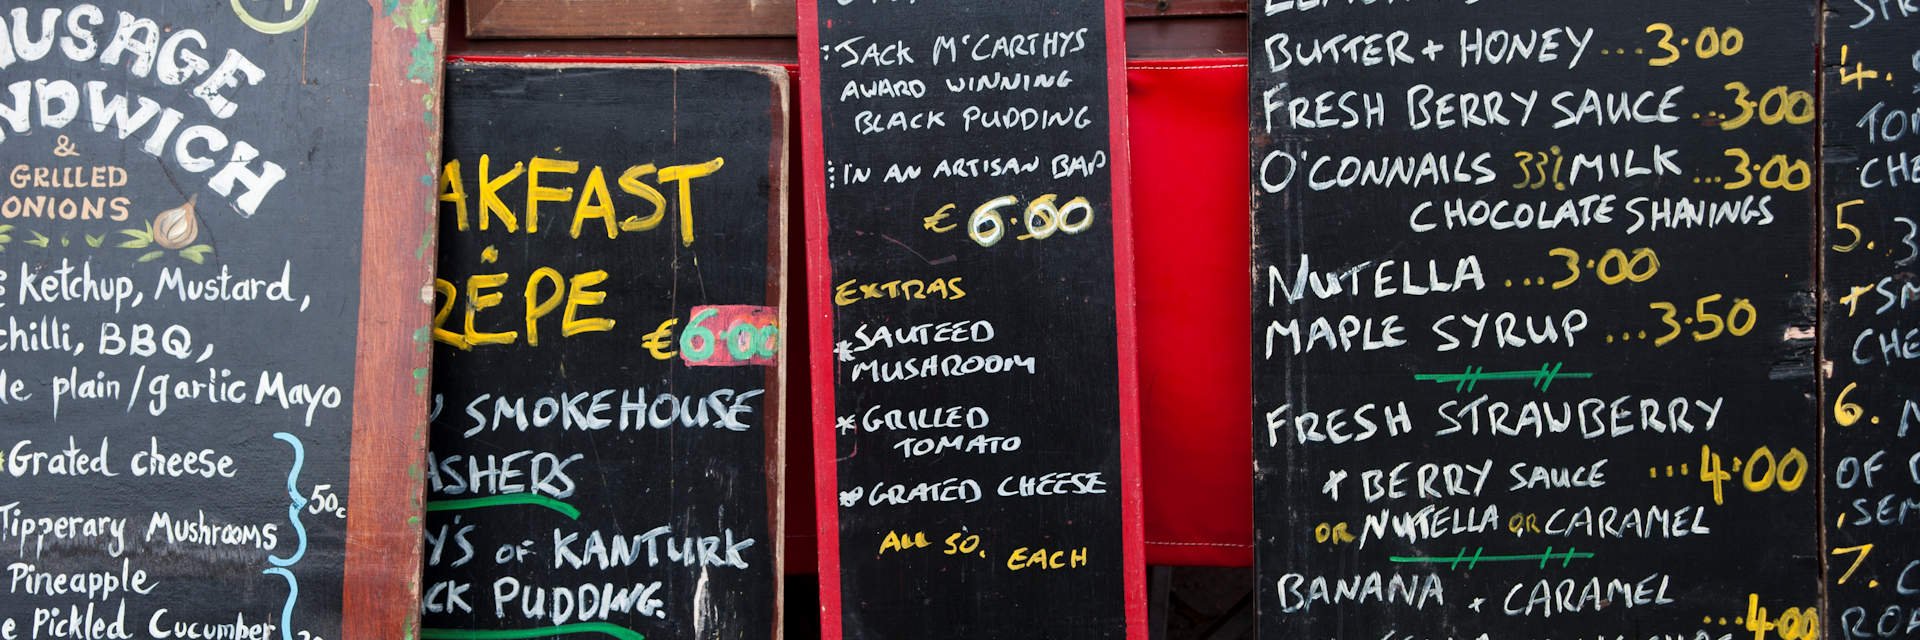 &
GRILLED
ONIONS
Ketchup, Mustard,
chilli, BBQ,
plain/garlic Mayo
Grated cheese
50c
Tipperary Mushrooms
Pineapple
Pickled Cucumber
€6.00
SMOKEHOUSE
OF KANTURK
PUDDING.
JACK McCARTHYS
AWARD WINNING
BLACK PUDDING
IN AN ARTISAN BAP
€ 6.00
EXTRAS
*SAUTEED
MUSHROOM
*GRILLED
TOMATO
*GRATED CHEESE
ALL 50. EACH
BUTTER + HONEY...3.00
FRESH BERRY SAUCE...3.00
O'CONNAILS 33% MILK ...3.00
CHOCOLATE SHAVINGS
NUTELLA ...3.00
MAPLE SYRUP ...3.50
FRESH STRAWBERRY
+ BERRY SAUCE ...4.00
OR NUTELLA OR CARAMEL
BANANA + CARAMEL
...4.00
4.
5.
6.
OF
7.